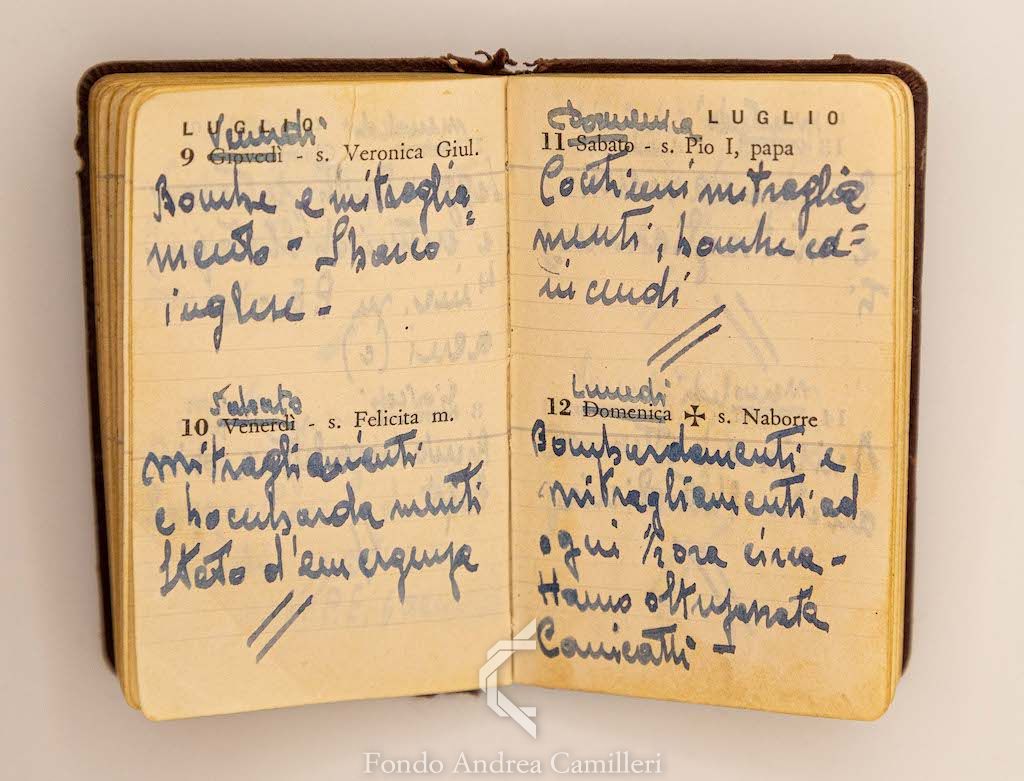 LUGLIO
Venerdì
9 Giovedì - s. Veronica Giul.
Bombe e mitraglia=
mento - Sbarco
inglese -
Sabato
10 Venerdì - s. Felicita m.
mitragliamenti
e bombardamenti
Stato d'emergenza
//
LUGLIO
Domenica
11 Sabato - s. Pio I, papa
Continui mitraglia
menti, bombe ed=
incendi
//
Lunedì
12 Domenica ✠ s. Naborre
Bombardamenti e
mitragliamenti ad
ogni ½ora circa -
Hanno oltrepassata
Canicattì -
Fondo Andrea Camilleri